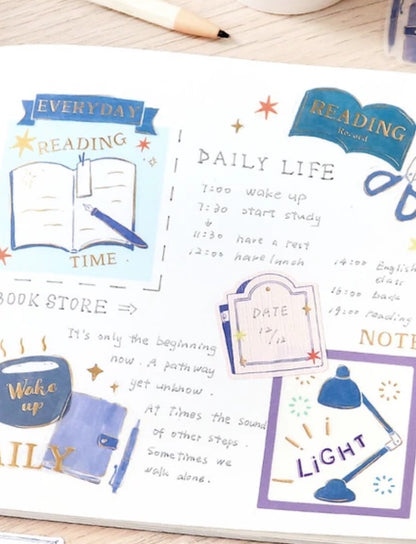 EVERYDAY
READING
TIME
BOOK STORE ⇒
It's only the beginning
now. A pathway
yet unknow.
At Times the sound
of other steps.
Sometimes we
walk alone.
Wake
up
DAILY
READING
Record
DAILY LIFE
7:00 wake up
7:30 start study
↓
11:30 have a rest
12:00 have lunch
14:00 English
class
18:00 back
19:00 reading
DATE
12/12
NOTE
LiGHT